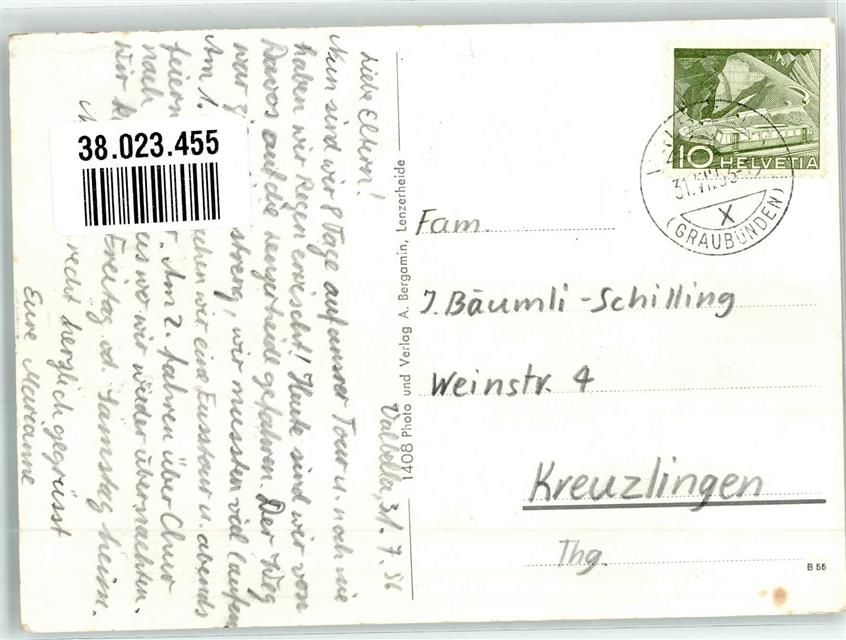 Valbella, 31. 7. 56
Liebe Eltern!
Nun sind wir 8 Tage auf unsrer Tour u. noch nie
haben wir Regen erwischt! Heute sind wir von
Davos auf die Lenzerheide gefahren. Der Weg
war streng, wir mussten viel laufen
Am 1. wir eine Fusstour u. abends
feiern Am 2. fahren über Chur
nach wo wir wieder übernachten.
wir Freitag od. Samstag heim.
recht herzlich gegrüsst
Eure Marianne
38.023.455
1408 Photo und Verlag A. Bergamin, Lenzerheide
10 HELVETIA
31.VII.56
X
(GRAUBÜNDEN)
Fam.
J. Bäumli-Schilling
Weinstr. 4
Kreuzlingen
Thg.
B 56